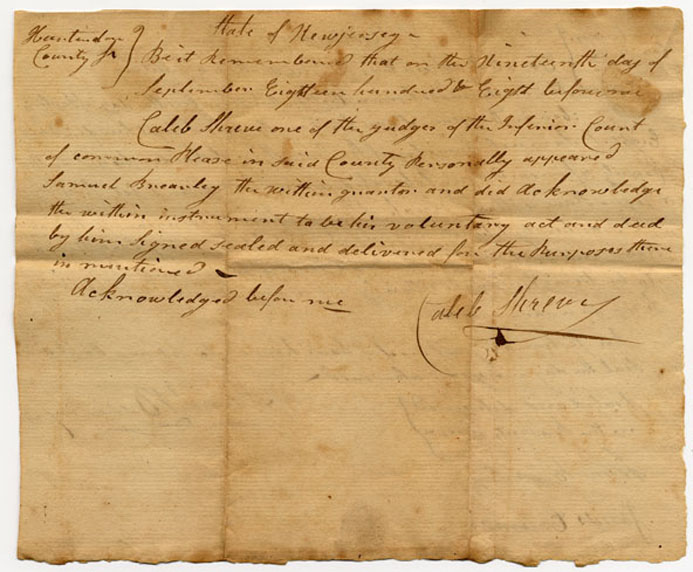 State of Newjersey
Huntindon
County Ss
Beit Remembered that on the Nineteenth day of
September Eighteen hundred & Eight before me
Caleb Shreve one of the judges of the Inferior Court
of common Please in said County Personally appeared
Samuel Brearley the within grantor and did Acknowledge
the within instrument to be his voluntary act and deed
by him Signed sealed and delivered for the Purposes there
in mentioned
Acknowledged before me
Caleb Shreve